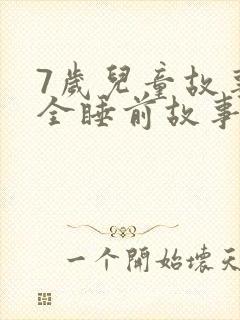 7歲兒童故事
全睡前故事
一个開始壞天